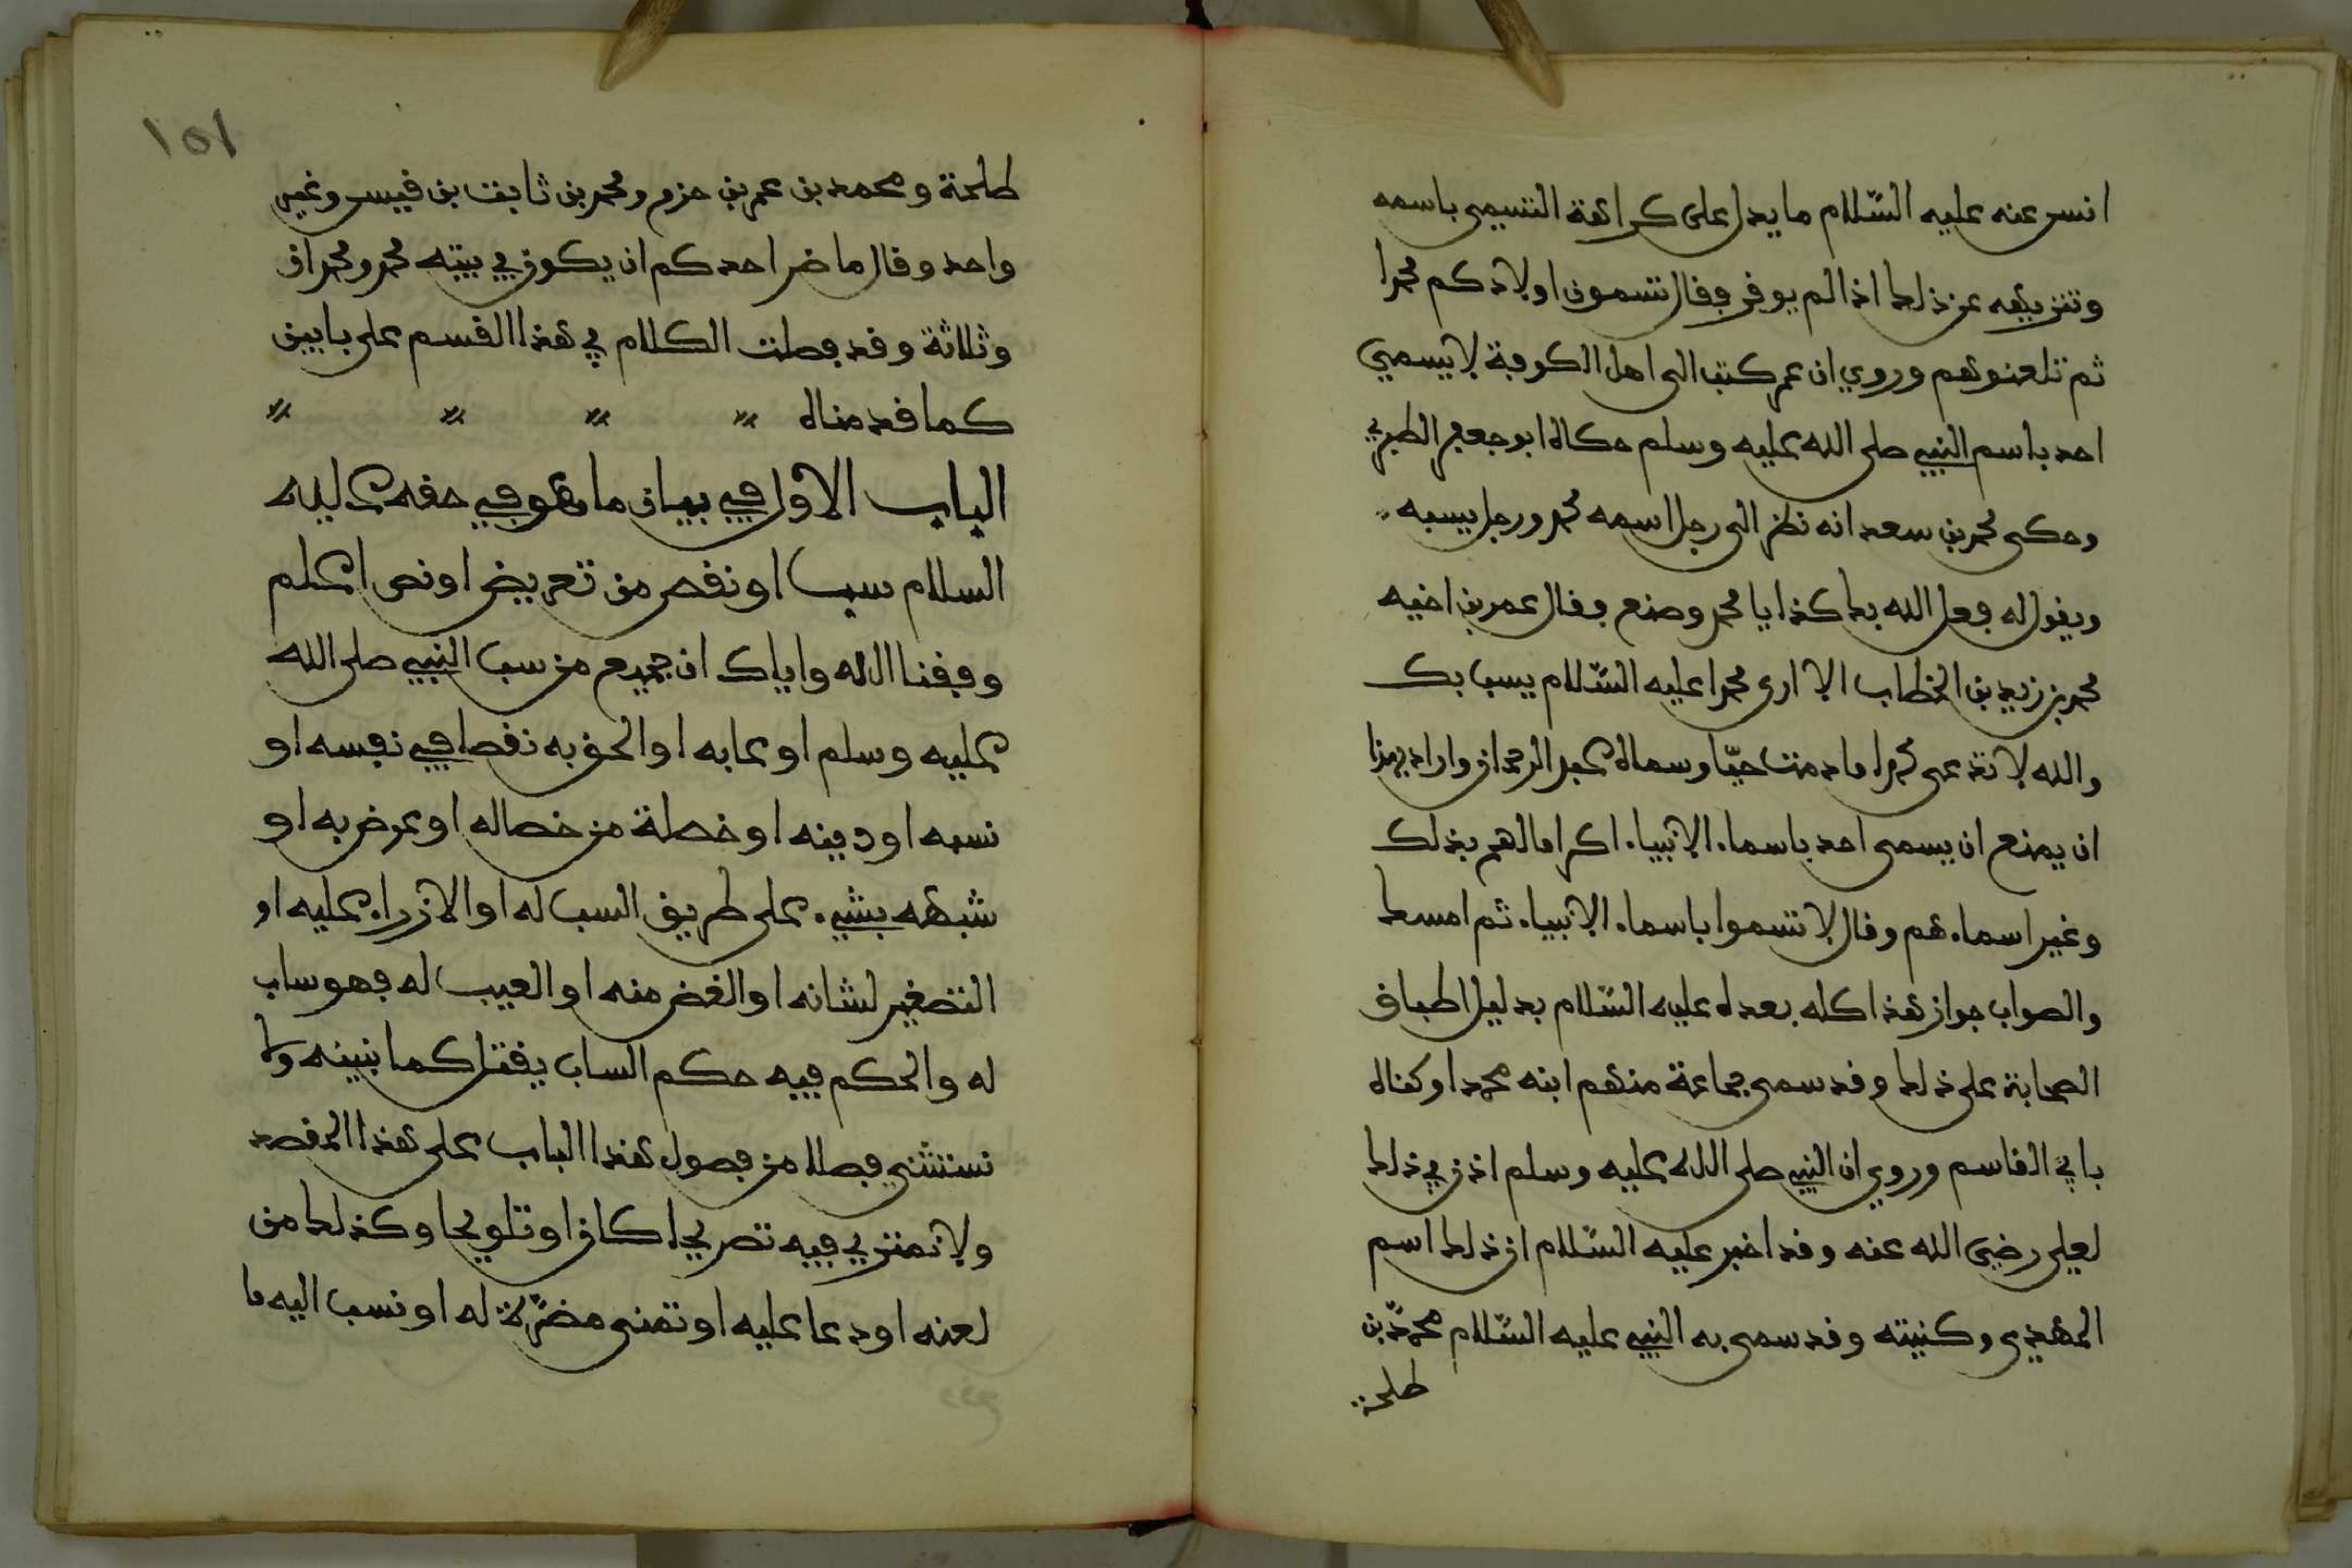 انس عنه عليه السّلام ما يدل على كراهة التسمى باسمه
وتنزيهه عن ذلك اذا لم يوقر وقال تسمون اولادكم محمدا
ثم تلعنوهم وروي ان عمر كتب الى اهل الكوفة لا يسمي
احد باسم النبي صلى الله عليه وسلم حكاه ابو جعفر الطبري
وحكى محمد بن سعد انه نظر الى رجل اسمه محمد ورجل يسبه
ويقول له فعل الله بك كذا يا محمد وصنع وقال عمر بن اخيه
محمد بن زيد بن الخطاب الا ارى محمدا عليه السّلام يسب بك
والله لا تدعى محمدا ما دمت حيّا وسماه عبد الرحمان واراد بهذا
ان يمنع ان يسمى احد باسماء الانبياء اكراما لهم بذلك
وغير اسماءهم وقال لا تسموا باسماء الانبياء ثم امسك
والصواب جواز هذا كله بعده عليه السّلام بدليل اطباق
الصحابة على ذلك وقد سمى جماعة منهم ابنه محمدا وكناه
بابي القاسم وروي ان النبي صلى الله عليه وسلم اذن في ذلك
لعلي رضي الله عنه وقد اخبر عليه السّلام ان ذلك اسم
المهدي وكنيته وقد سمى به النبي عليه السّلام محمّد بن
طلحة
١٥١
طلحة ومحمد بن عمر بن حزم ومحمد بن ثابت بن قيس وغير
واحد وقال ما ضر احدكم ان يكون في بيته محمد ومحمدان
وثلاثة وقد فصلت الكلام في هذا القسم على بابين
كما قدمناه
الباب الاول في بيان ما هو في حقه عليه
السلام سب او نقص من تعريض او نص اعلم
وفقنا الله واياك ان جميع من سب النبي صلى الله
عليه وسلم او عابه او الحق به نقصا في نفسه او
نسبه او دينه او خصلة من خصاله او عرض به او
شبهه بشيء على طريق السب له او الازراء عليه او
التصغير لشانه او الغض منه او العيب له فهو ساب
له والحكم فيه حكم الساب يقتل كما نبينه ولا
نستثني فصلا من فصول هذا الباب على هذا المقصد
ولا نمتري فيه تصريحا كان او تلويحا وكذلك من
لعنه او دعا عليه او تمنى مضرّة له او نسب اليه ما